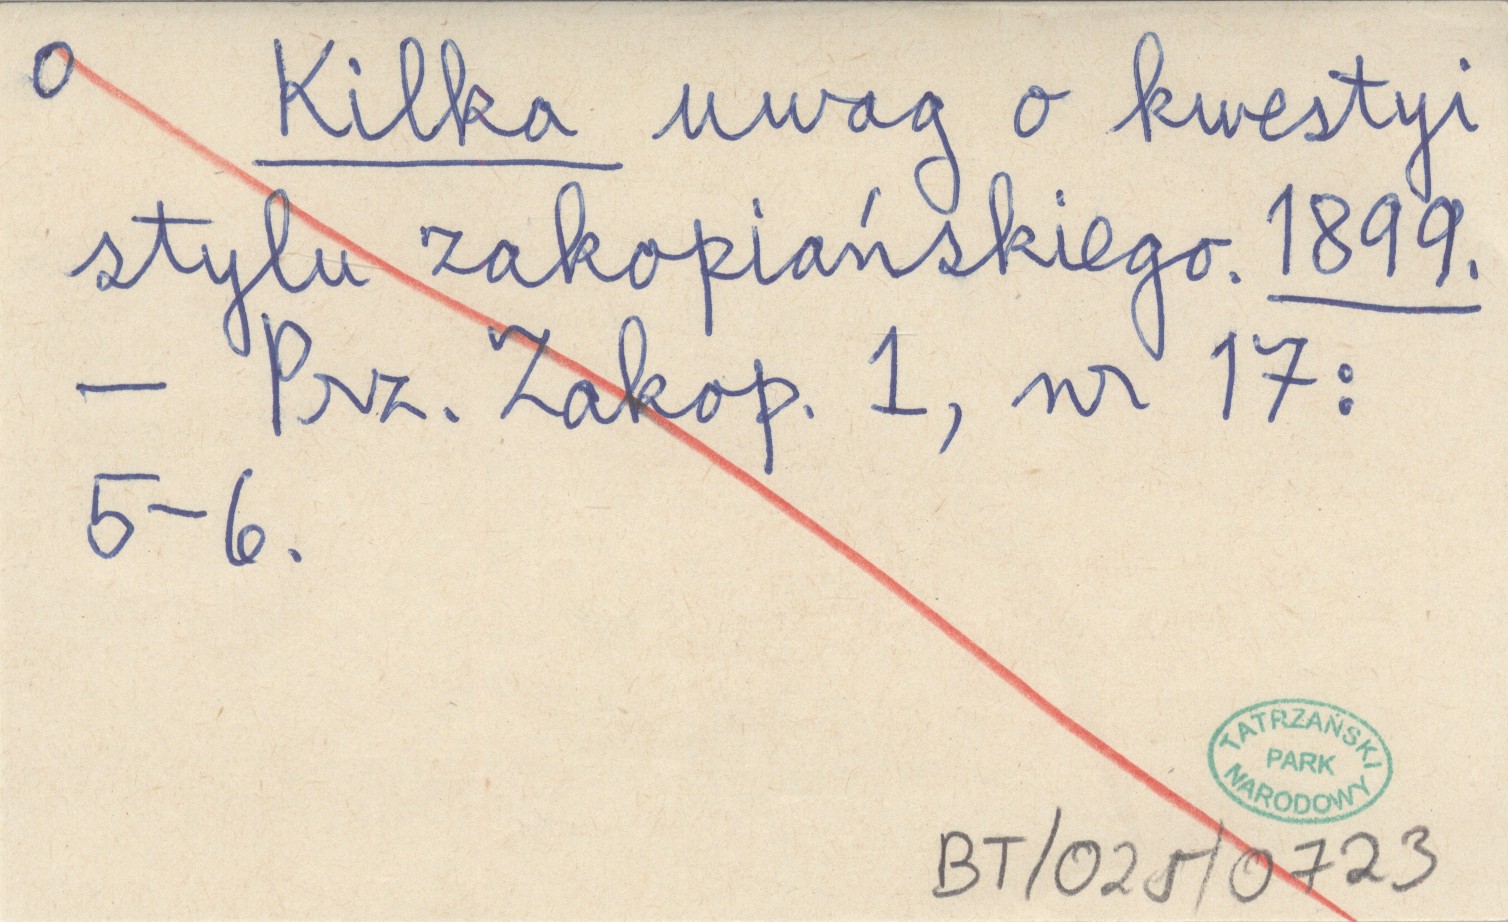 o Kilka uwag o kwestyi
stylu zakopiańskiego. 1899.
— Prz. Zakop. 1, nr 17:
5-6.
TATRZAŃSKI
PARK
NARODOWY
BT/025/0723